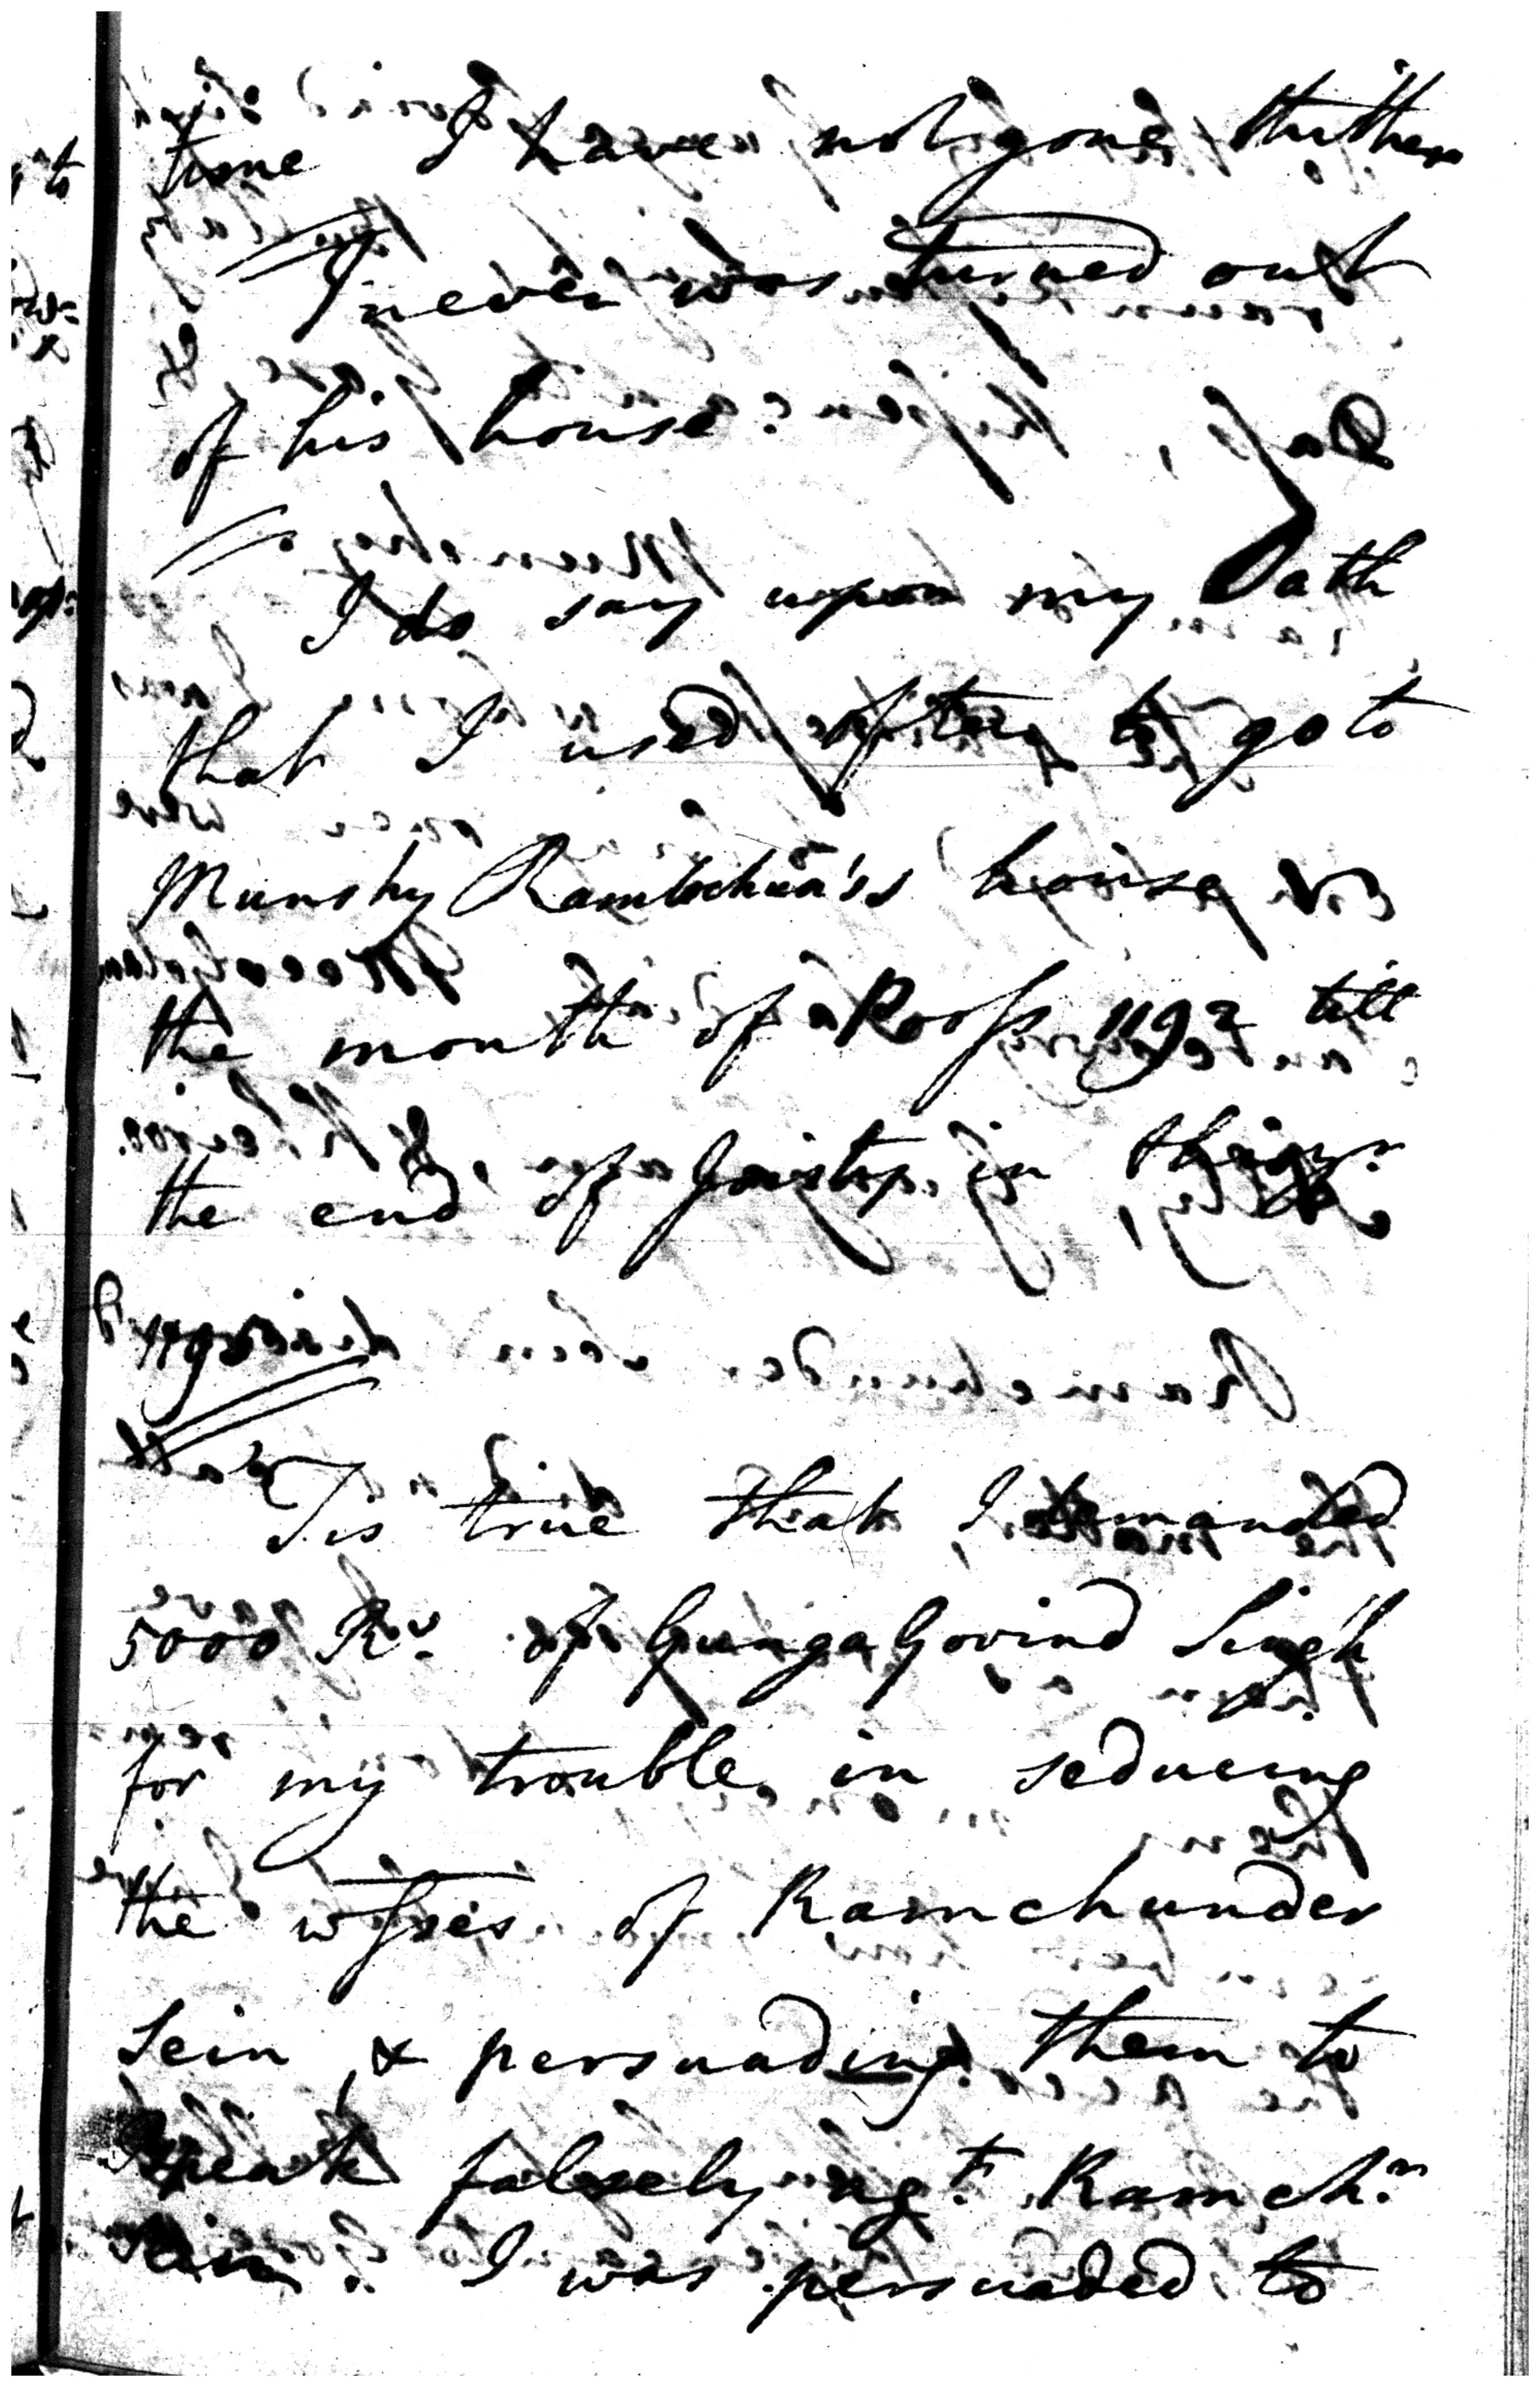 time I have not gone thither
I never was turned out
of his house.
I do say upon my Oath
that I used often to go to
Munshy Ramlochun's house
the month of Pooss 1192 till
the end of Joistp in
Tis true that I demanded
5000 Rs. of Gunga Govind Singh
for my trouble in seducing
the wifes of Ramchunder
Sein & persuading them to
Speak falsely agt. Ramchr
Sein. I was persuaded to